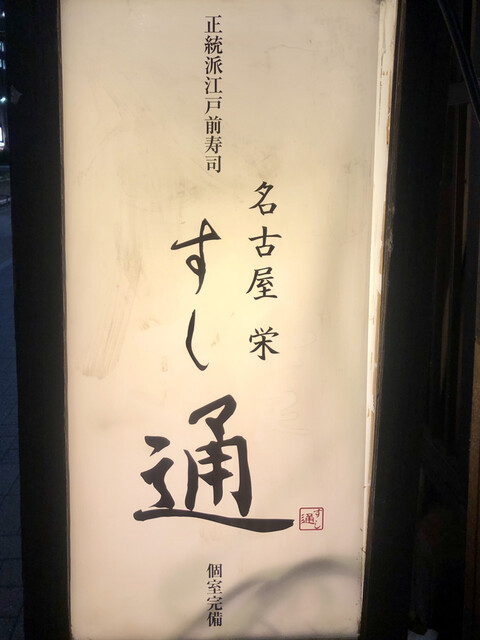 正統派江戸前寿司
名古屋 栄
すし
通
すし
通
個室完備